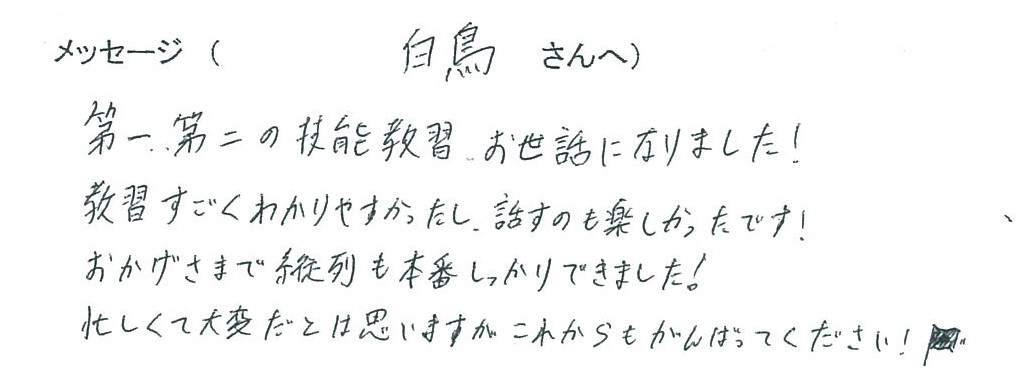 メッセージ（ 白鳥 さんへ）
第一、第二の技能教習、お世話になりました！
教習すごくわかりやすかったし、話すのも楽しかったです！
おかげさまで縦列も本番しっかりできました！
忙しくて大変だとは思いますがこれからもがんばってください！